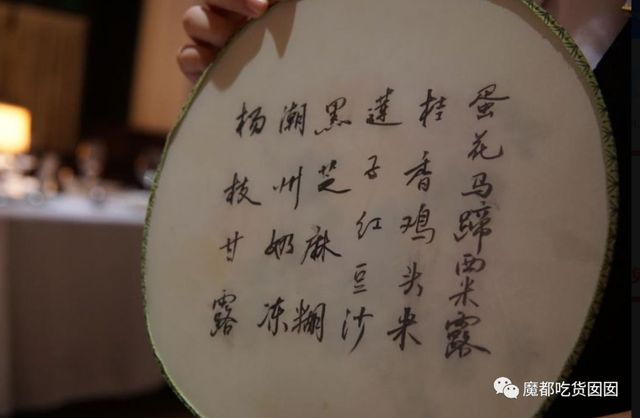 蛋花马蹄西米露
桂香鸡头米
莲子红豆沙
黑芝麻糊
潮州奶冻
杨枝甘露
魔都吃货囡囡